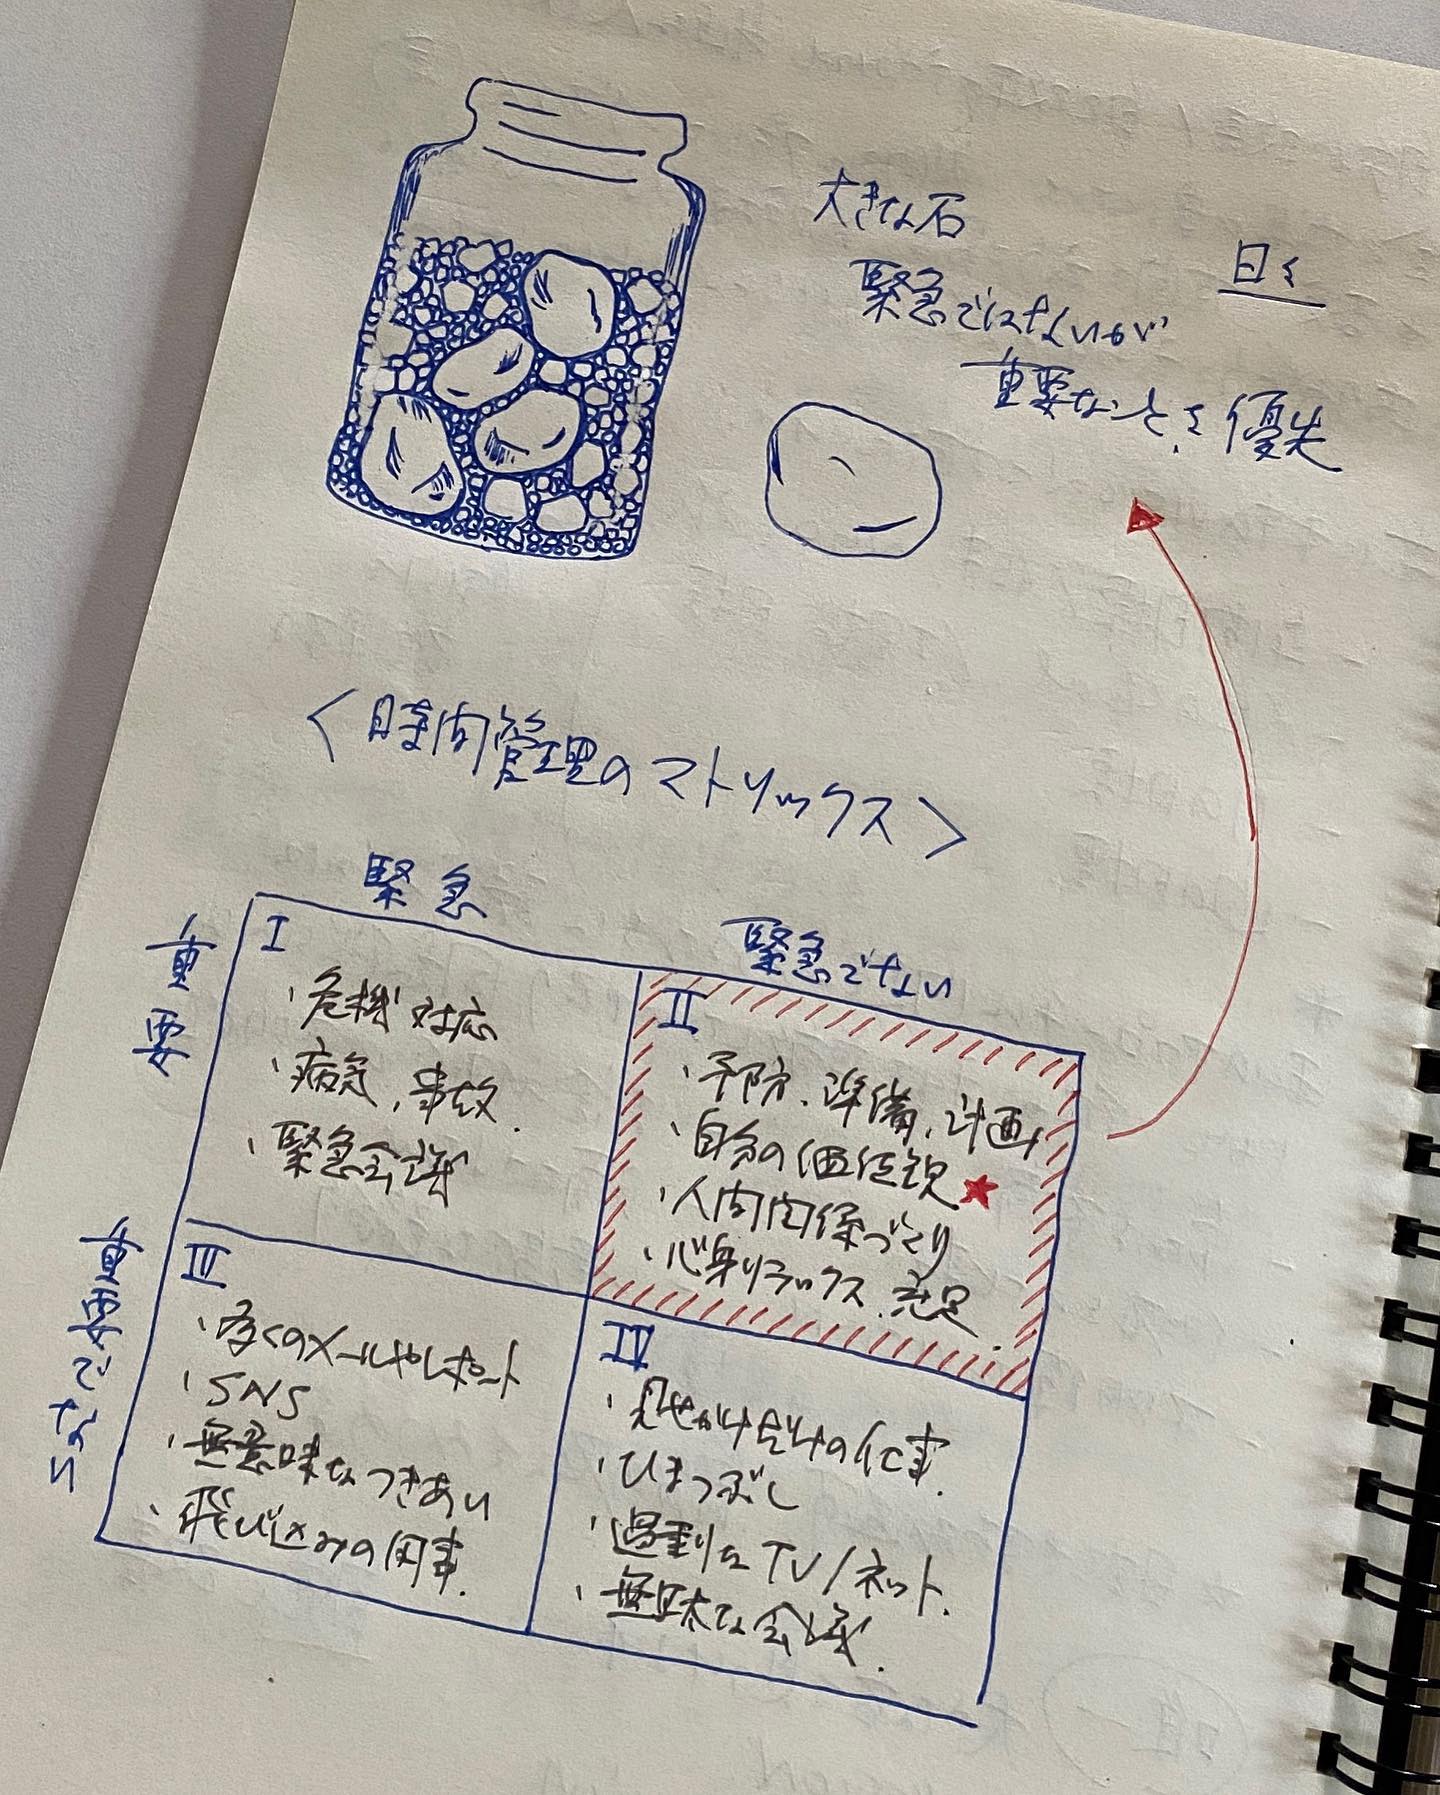 大きな石
日々
緊急ではないが
重要なことを優先
<時間管理のマトリックス>
緊急
緊急でない
重要
I
・危機対応
・病気、事故.
・緊急会議
II
・予防、準備、計画
・自分の価値観★
・人間関係づくり
・心身リラックス、充足.
重要でない
III
・多くのメールやレポート
・SNS
・無意味なつきあい
・飛び込みの用事.
IV
・見せかけだけの仕事.
・ひまつぶし
・過剰なTV/ネット.
・無駄な会議.